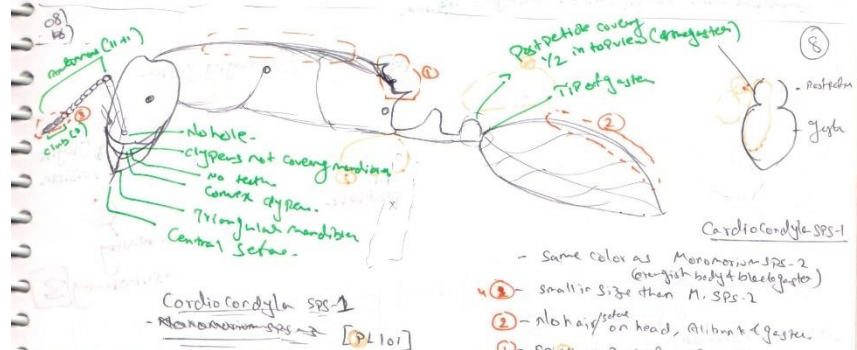 08)
Antennae (11+1)
club (3)
No hole.
clypeus not covering mandibles
No teeth
Convex clypeu.
Triangular mandibles
Central Setae.
①
Postpetiole covery
1/2 in top view (
Tip of gaster
②
⑧
Postpetiole
gaster
CardioCondyla SPS-1
- Same color as Monomorium SPS-2
(orengish body & black gaster)
- small in size then M. SPS-2
② - No hair/setae on head, Alitrunk & gaster.
①-
Cordiocondyla SPS-1
- Monomorium SPS-3 [PL101]